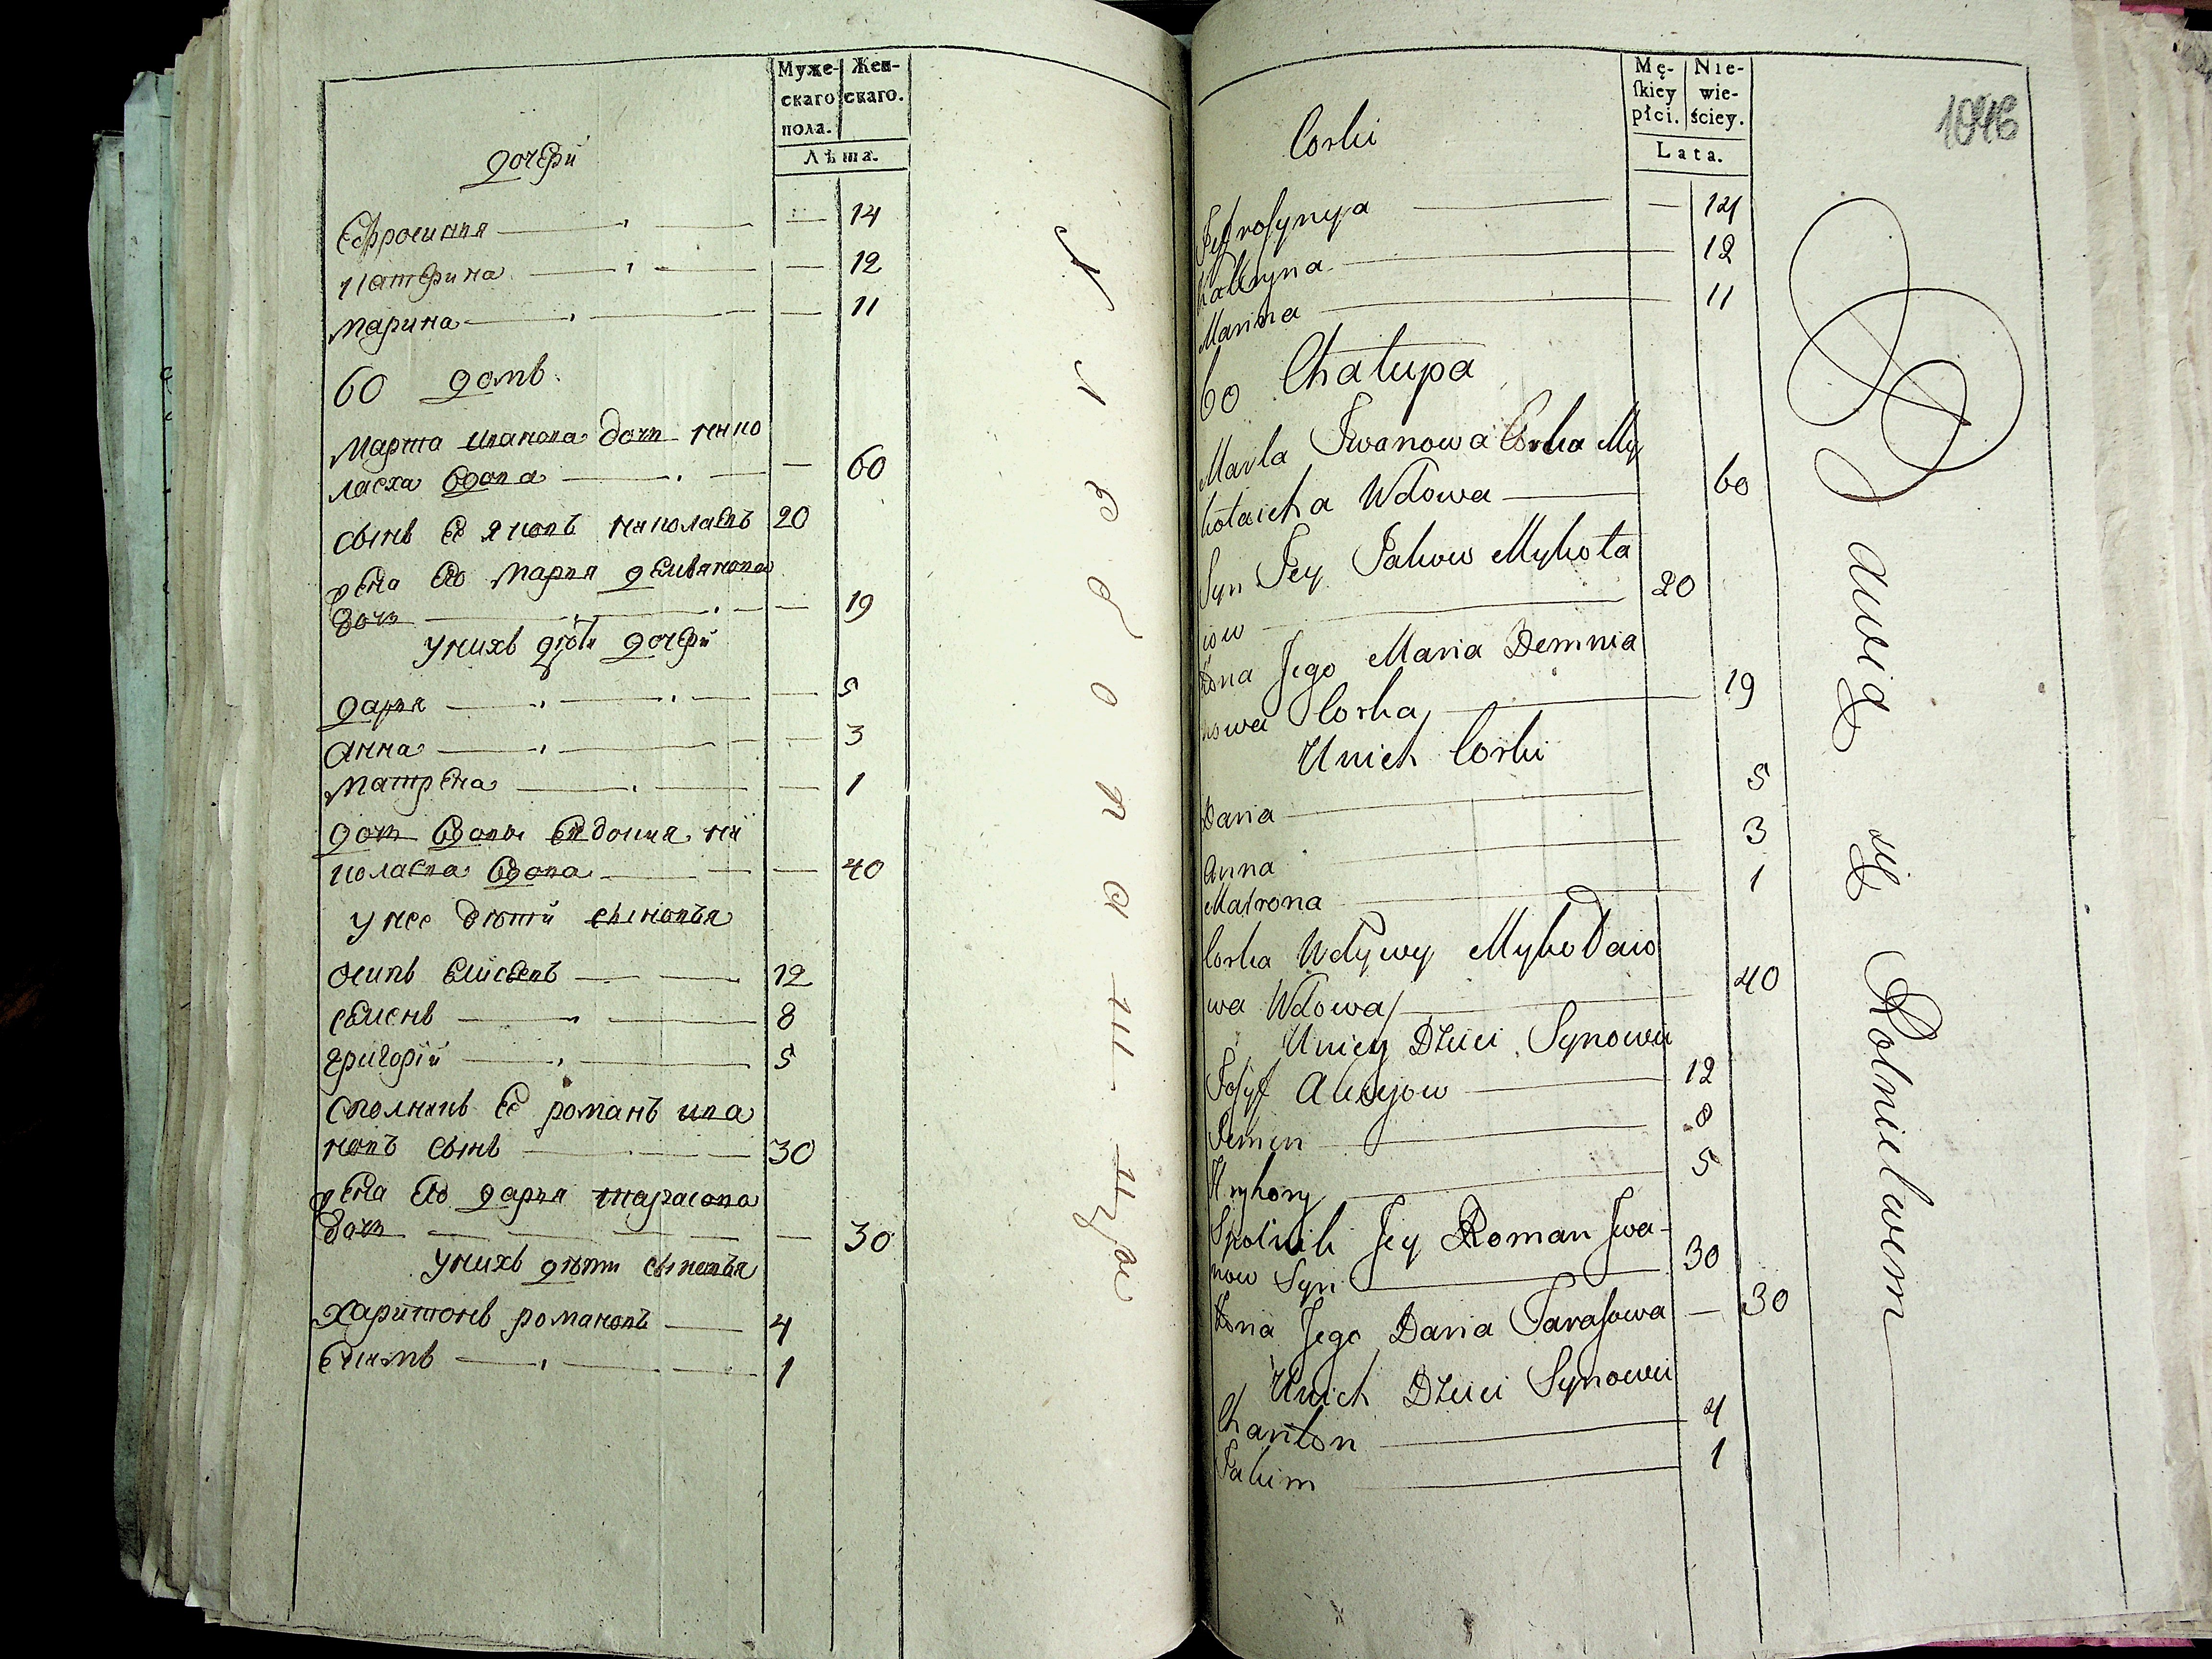 Муже-
скаго
пола.
Жен-
скаго.
Лѣта.
дочери
Ефросиния — 14
Катерина — 12
Марина — 11
60 домъ
Марта иванова дочь мико
лаеха вдова — 60
сынъ ее яковъ миколаевъ 20
жена его Мария демянова
дочь — 19
У нихъ дѣти дочери
дария — 5
Анна — 3
Матрена — 1
дочь вдовы Евдокия ми
колаева вдова — 40
у нее дѣти сыновья
осипъ Елисеевъ — 12
семенъ — 8
григорій — 5
сполникъ ее романъ ива
новъ сынъ — 30
жена его дария тарасова
дочь — 30
у нихъ дѣти сыновья
Харитонъ романовъ — 4
Екимъ — 1
Mę-
ſkiey
płci.
Nie-
wie-
ściey.
Lata.
Corki
Jefrosynya — 14
Katryna — 12
Marina — 11
60 Chałupa
Marta Iwanowa Corka My
kołaicha Wdowa — 60
Syn Jey Jakow Mykoła
iow — 20
Żona Jego Maria Demnia
nowa Corka — 19
U nich Corki
Daria — 5
Anna — 3
Matrona — 1
Corka Wdywy Mykołaio
wa Wdowa — 40
U niey Dzieci Synowie
Josyf — 12
Semen — 8
Hryhory — 5
Spolnik Jey Roman Iwa-
now Syn — 30
Żona Jego Daria Tarasowa — 30
U nich Dzieci Synowie
Chariton — 4
Jakim — 1
Dawid
Rolnickiem